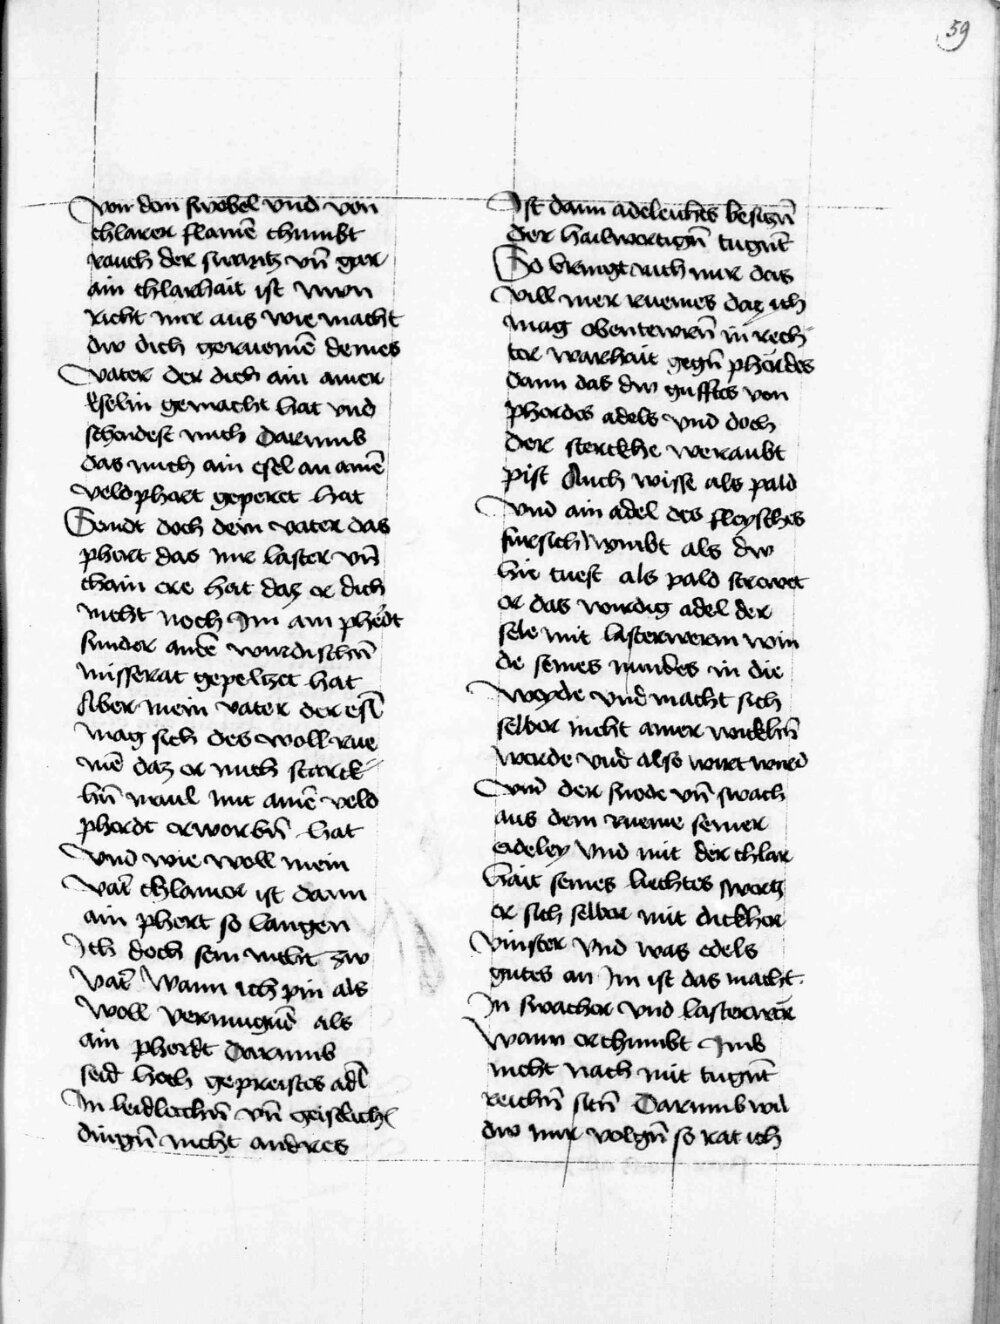 59
Von dem swebel vnd von
chlarer flamē chumbt
rauch der swartz vn̄ gar
ain chlarhait ist Nwn
Richt mir aus wie macht
dw dich gerüemē deines
Vater der dich ain amer
Eselin gemacht hat vnd
schendest mich Darumb
das mich ain esel an ainē
veldphärt geperet hat
Sendt doch dein vater das
phert das mir laster vn̄
chain ere hat daz er dich
nicht noch Im ain pherdt
sunder andē wurdischen̄
missерat gepeltzet hat
Aber mein vater der esl̄
mag sich des woll rue
mē daz er mich starck
hn̄ maul mit ainē veld
pherdt erworbn̄ hat
Vnd wie woll mein
vat̄ chlainer ist dann
ain phert so langen
Ich doch sein nicht zw
vat̄ Wann ich pin als
woll vermugūē als
ain pherdt Darumb
seid hoch gepreistes adl̄
In leidlichn̄ vn̄ geistlich
dingn̄ nicht andres
Ist dann adeleiches besign̄
der hailwertign̄ tugn̄t
So bringt mich mir das
vill mer ruemes daz ich
mag obentewrn̄ in rech
ter warhait gegn̄ pherdes
dann das dw gufftes von
pherdes adels vnd doch
der sterckhe weraubt
pist Auch wisse als pald
Vnd ain adel des fleysches
fursich nymbt als dw
hie tuest als pald strewet
er das wirdig adel der
sele mit lasterwerin win
de seines mundes in die
weyde vnd macht sich
selber nicht ainer wicklin̄
werde vnd also wirt wird
Vnd der snode vn̄ swach
aus dem rueme seiner
Edeley vnd mit der chlar
hait seines liechtes swertz
er sich selber mit dickher
vinster Vnd was edels
gutes an Im ist das macht
In swacher vnd lasterwer
Wann er chumbt Ims
nicht nach mit tugn̄t
reichn̄ sitn̄ Darumb wil
dw mir volgn̄ so rat ich